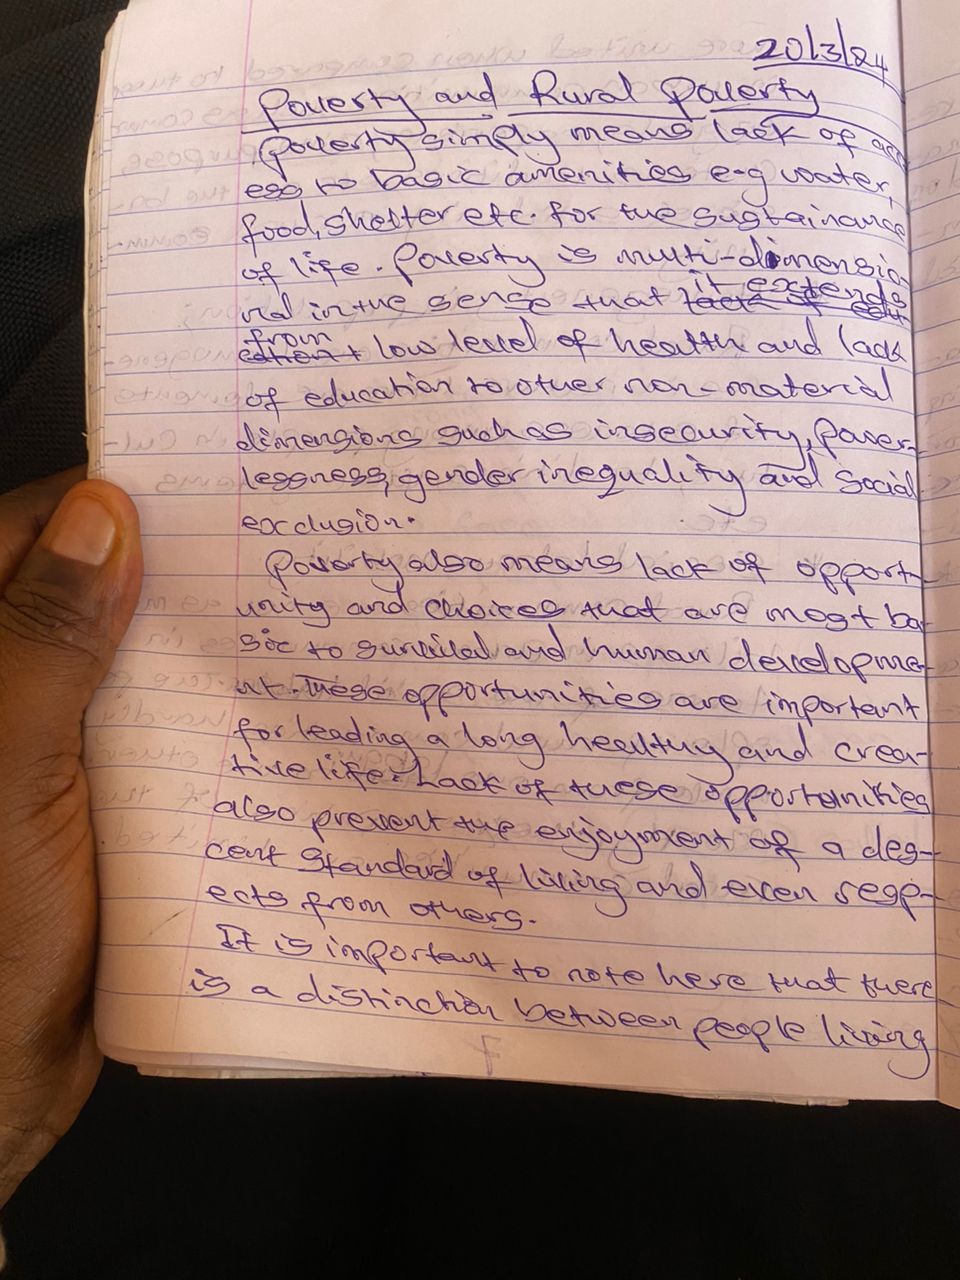 20/3/24
Poverty and Rural Poverty
Poverty simply means lack of acc
ess to basic amenities e.g water,
food, shelter etc. for the sustainance
of life. Poverty is multi-dimensio
nal in the sense that it extends
from low level of health and lack
of education to other non-material
dimensions such as insecurity, power-
lessness, gender inequality and social
exclusion.
Poverty also means lack of opport-
unity and choices that are most ba-
sic to survival and human developme-
nt. These opportunities are important
for leading a long healthy and crea-
tive life. Lack of these opportunities
also prevent the enjoyment of a des-
cent standard of living and even resp-
ects from others.
It is important to note here that there
is a distinction between people living